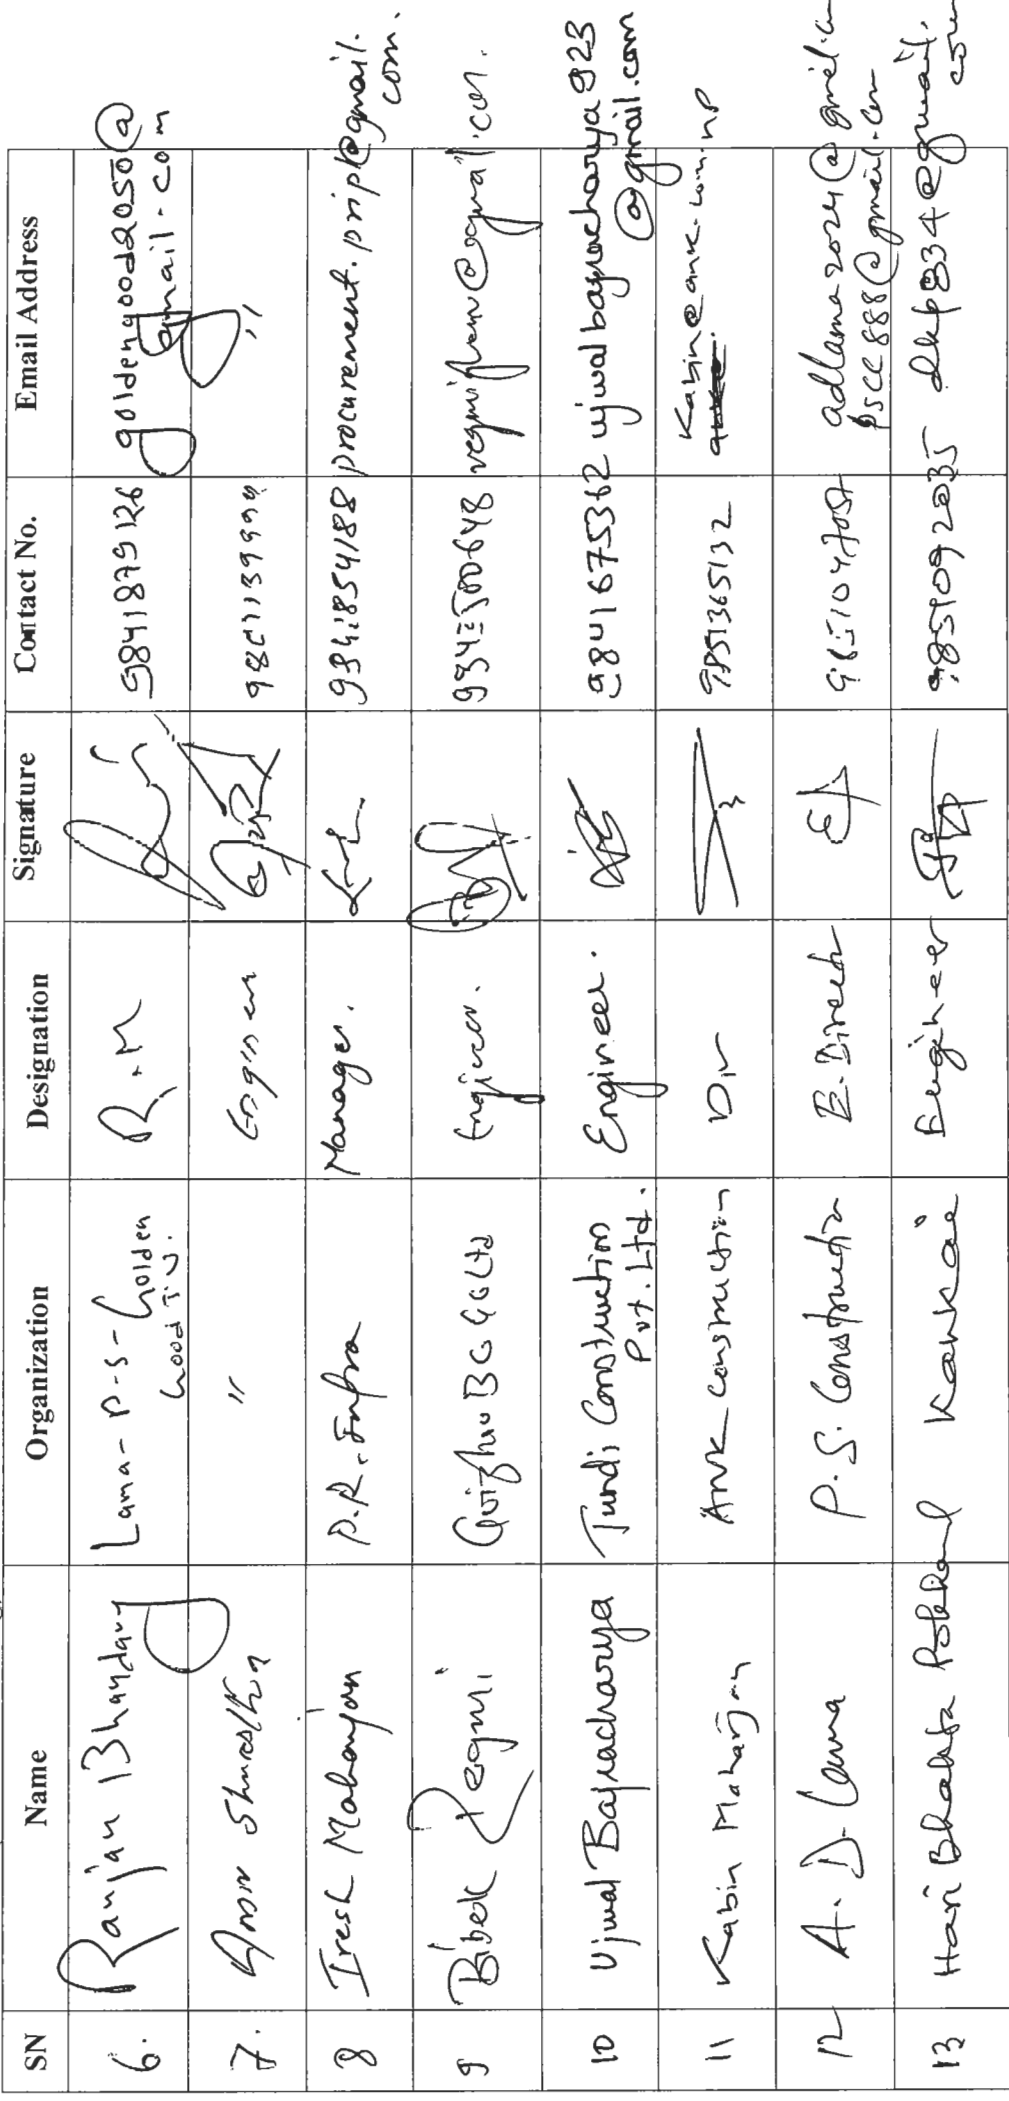 SN Name Organization Designation Signature Contact No. Email Address
6. Ranjan Bhandary Lama-P.S-Golden Good J.V. R.M 9841879126 goldengood2050@gmail.com
7. Shrestha " Engineer "
8 Iresh Maharjan P.R. Infra Manager. 9841854188 procurement.pripl@gmail.com.
9 Bibek Regmi Engineer.
10 Ujwal Bajracharya Tundi Construction Pvt. Ltd. Engineer. 9841675362 ujwalbajracharya923@gmail.com
11 Kabin Maharjan ANK Construction Dir 9851365132 Kabin@ank.com.np
12 A. D. Lama P. S. Construction E. Director adlama2024@gmail.com
pscc888@gmail.com
13 Hari Bhakta Pokharel Kankai Engineer 9851092035